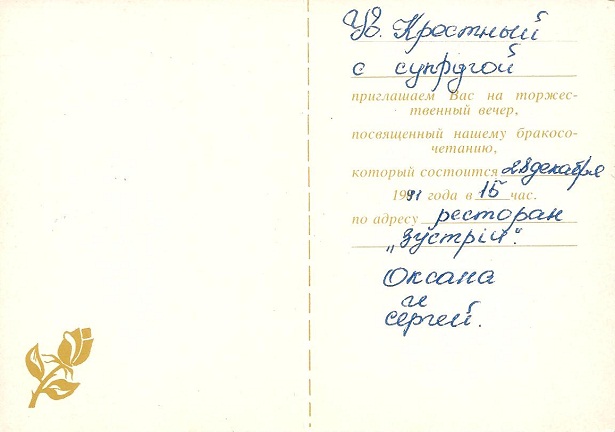 Ув. Крестный
с супругой
приглашаем Вас на торжес-
твенный вечер,
посвященный нашему бракосо-
четанию,
который состоится 28 декабря
1991 года в 15 час.
по адресу ресторан
„Зустрій".
Оксана
и
Сергей.